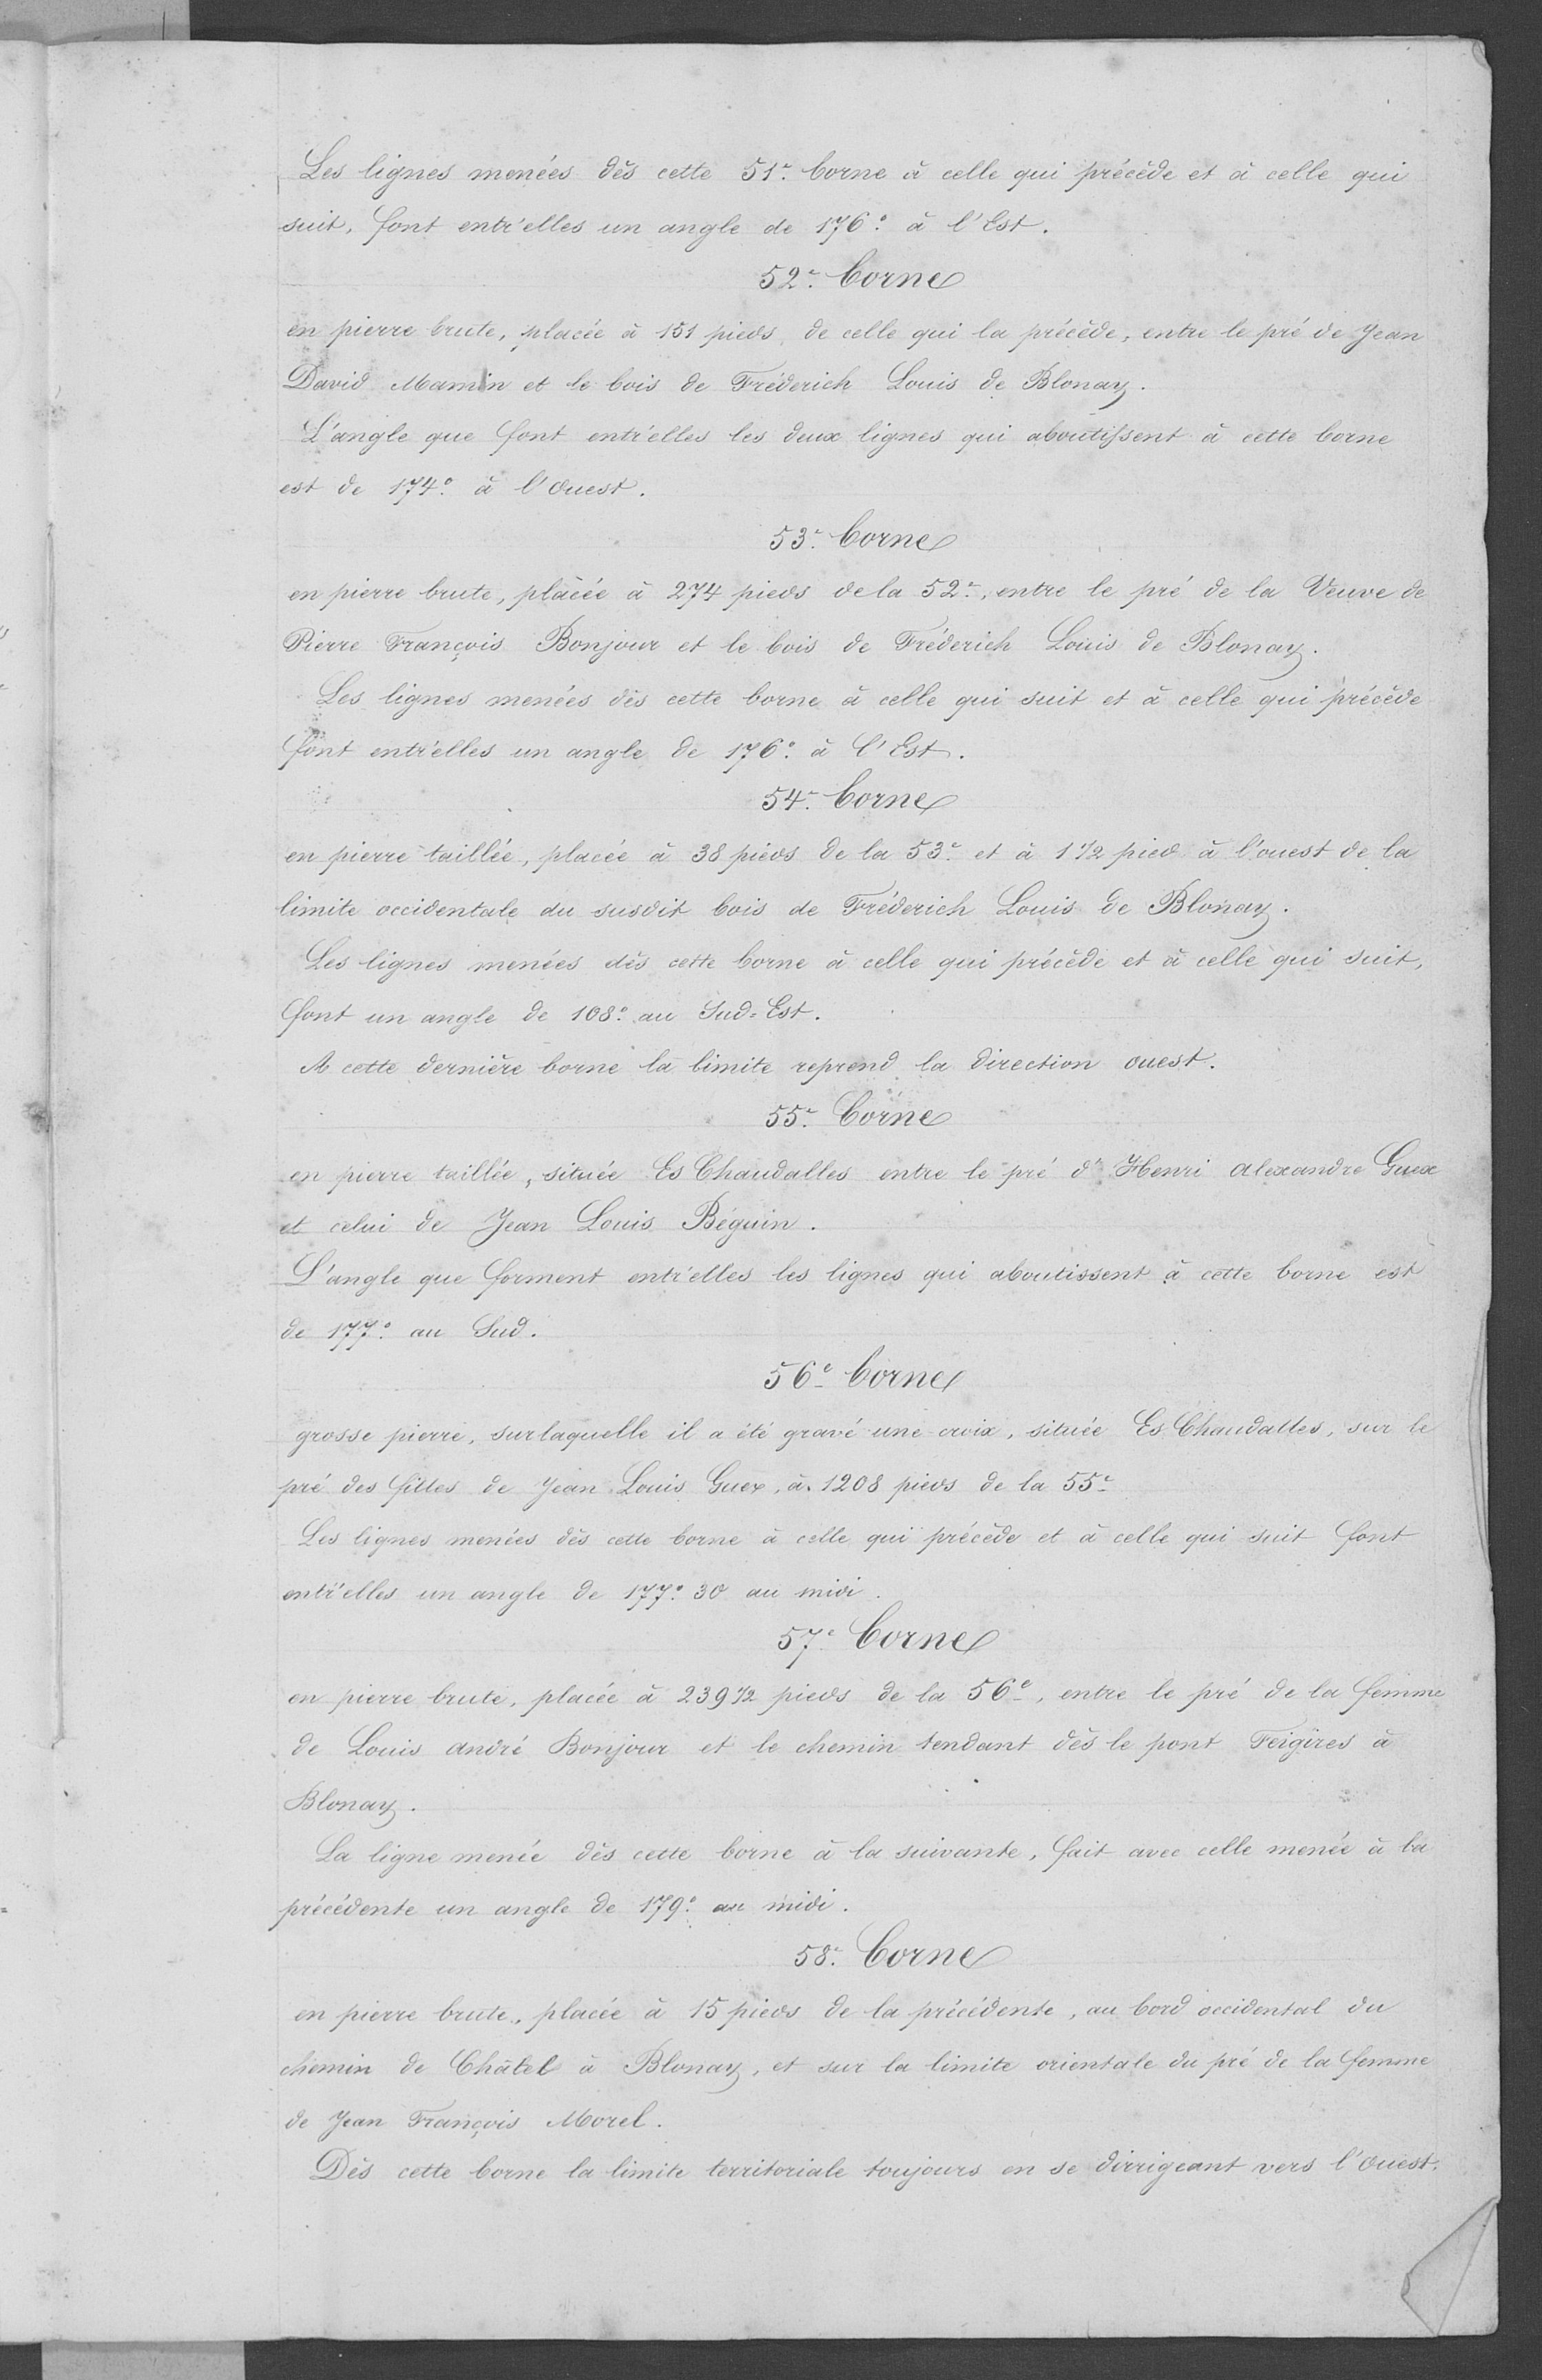 Les lignes menées dès cette 51e borne à celle qui précède et à celle qui
suit, font entr'elles un angle de 176° à l'Est.
52e borne
en pierre brute, placée à 151 pieds de celle qui la précède, entre le pré de Jean
David Mamin et le bois de Fréderich Louis de Blonay.
L'angle que font entr'elles les deux lignes qui aboutissent à cette borne
est de 174° à l'Ouest.
53e borne
en pierre brute, placée à 274 pieds de la 52e, entre le pré de la Veuve de
Pierre François Bonjour et le bois de Fréderich Louis de Blonay.
Les lignes menées dès cette borne à celle qui suit et à celle qui précède
font entr'elles un angle de 176° à l'Est.
54e borne
en pierre taillée, placée à 38 pieds de la 53e et à 1 1/2 pied à l'ouest de la
limite occidentale du susdit bois de Fréderich Louis de Blonay.
Les lignes menées dès cette borne à celle qui précède et à celle qui suit,
font un angle de 108° au Sud-Est.
A cette dernière borne la limite reprend la direction ouest.
55e borne
en pierre taillée, située Es Chaudalles entre le pré d'Henri Alexandre Guex
et celui de Jean Louis Béguin.
L'angle que forment entr'elles les lignes qui aboutissent à cette borne est
de 177° au Sud.
56e borne
grosse pierre, sur laquelle il a été gravé une croix, située Es Chaudalles, sur le
pré des filles de Jean Louis Guex, à 1208 pieds de la 55e
Les lignes menées dès cette borne à celle qui précède et à celle qui suit font
entr'elles un angle de 177° 30 au midi.
57e borne
en pierre brute, placée à 239 1/2 pieds de la 56e, entre le pré de la femme
de Louis André Bonjour et le chemin tendant dès le pont Feigires à
Blonay.
La ligne menée dès cette borne à la suivante, fait avec celle menée à la
précédente un angle de 179° au midi.
58e borne
en pierre brute, placée à 15 pieds de la précédente, au bord occidental du
chemin de Châtel à Blonay, et sur la limite orientale du pré de la femme
de Jean François Morel.
Dès cette borne la limite territoriale toujours en se dirrigeant vers l'Ouest.